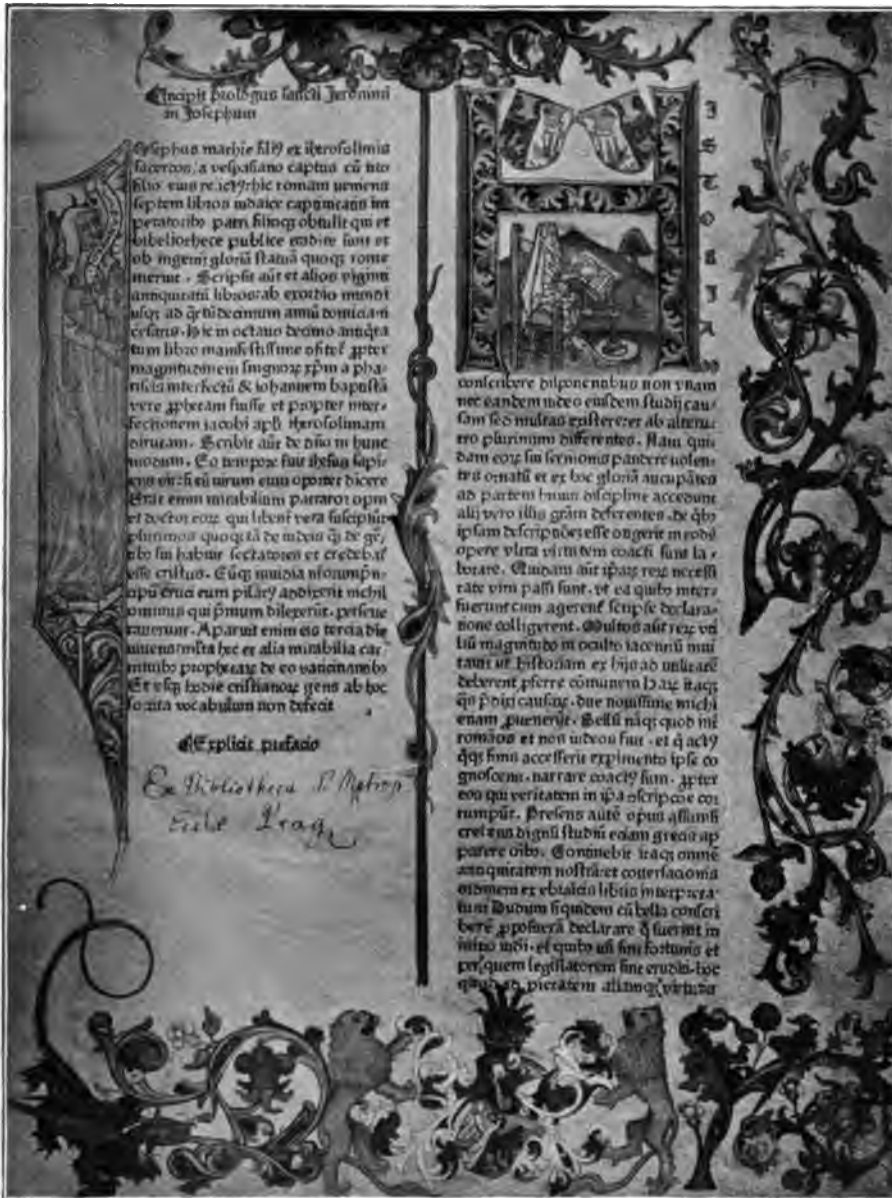 Incipit prologus sancti Jeronimi
in Josephum
Josephus mathie filiꝰ ex iherosolimis
sacerdos a vespasiano captus cū tito
filio eius hic romam veniens
septem libros iudaice captiuitatis im
peratoribꝰ patri filioqꝫ obtulit qui et
bibeliothece publice tradite sunt et
ob ingenij gloriā statuā quoqꝫ rome
meruit. Scripsit aūt et alios viginti
antiquitatū libros: ab exordio mundi
usqꝫ ad decimum annū domiciani
cesaris. Hic in octauo decimo antiq̄ta
tum libro manifestissime ꝓpter
magnitudinem signoꝝ xp̄m a pha
riseis interfectū & iohannem baptistā
vere ꝓphetam fuisse et propter inter
fectionem iacobi apl̄i iherosolimam
dirutam. Scribit aūt de dn̄o in hunc
modum. Eo tempore fuit ihesus sapi
ens vir si eū uirum oportet dicere
Erat enim mirabilium patrator opm
et doctor eoꝝ qui libent̄ vera suscipiūt
plurimos quoqꝫ tā de iudeis qꝫ de gē
sui habuit sectatores et credebat̄
esse cristus. Cūqꝫ inuidia
cruci eum addixerit nichil
ominus qui pͥmum dilexerūt. perseue
rauerunt. Aparuit enim eis tercia die
viuens multa hec et alia mirabilia car
prophetaꝝ de eo vaticinantibꝰ
Et vsqꝫ hodie cristianoꝝ gens ab hoc
sortita vocabulum non defecit
Explicit prefacio
Ex Bibliotheca S. Metrop
Eccle Prag
H
I
S
T
O
R
I
A
conscribere disponentibus non vnam
nec eandem video eiusdem studij cau
sam sed multas existere: et ab alteru
tro plurimum differentes. Nam qui
dam eoꝝ sui sermonis pandere uolen
tes ornatū et ex hoc gloriā aucupātes
ad partem huius discipline accedunt
alij vero illis grām deferentes. de q̄bꝰ
ipsam descriptōꝫ esse
opere vltra virtutem coacti sunt la
borare. Quidam aūt ip̄aꝝ reꝝ necessi
tate vim passi sunt. vt ea quibꝰ inter
fuerunt cum agerent̄ scripte declara
tione colligerent. Multos aūt reꝝ vti
liū magnitudo in oculto iacentiū inui
tauit ut historiam ex hijs ad utilitatē
deberent ꝓferre cōmunem Haꝝ itaqꝫ
causaꝝ. due nouissime michi
etiam ꝓuenerūt. Bellū nāqꝫ quod int̄
romāos et nos iudeos fuit. et actꝰ
finis accesserit exp̄imento ipse co
gnoscens. narrare coactꝰ sum. ꝓpter
eos qui veritatem in ip̄a cor
rumpūt. Presens autē opus assumsi
credens dignū studiū eciam grecis ap
parere oībꝰ. Continebit itaqꝫ omnē
antiquitatem nostrā: et conuersacionis
ordinem ex ebraicis libris interpreta
tum Dudum siquidem cū bella conscri
bere ꝓposuerā declarare q̄ fuerint in
inicio iudei. et quibꝰ usi sint fortunis et
per quem legislatorem sint eruditi. hoc
ad pietatem aliamqꝫ virtutē